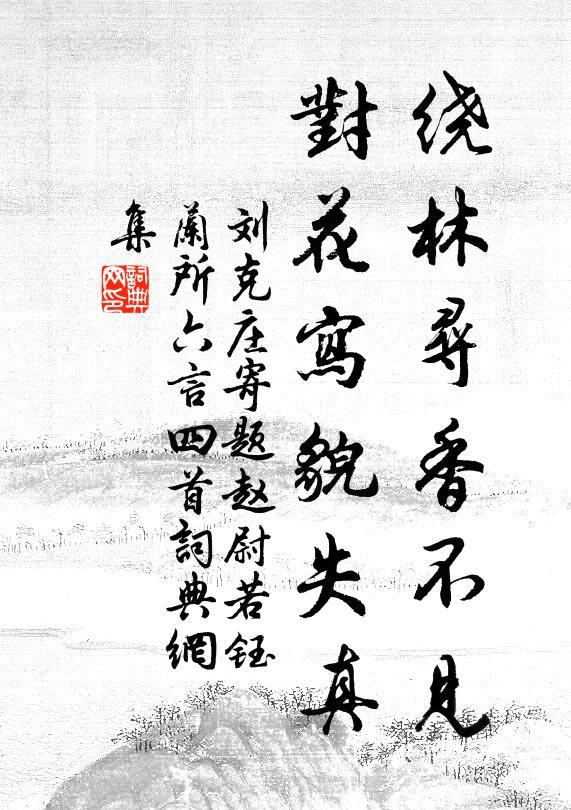 绕林尋香不見
對花寫貌失真
刘克庄寄题赵尉若钰
蘭所六言四首詞典網
集
詞典
网印